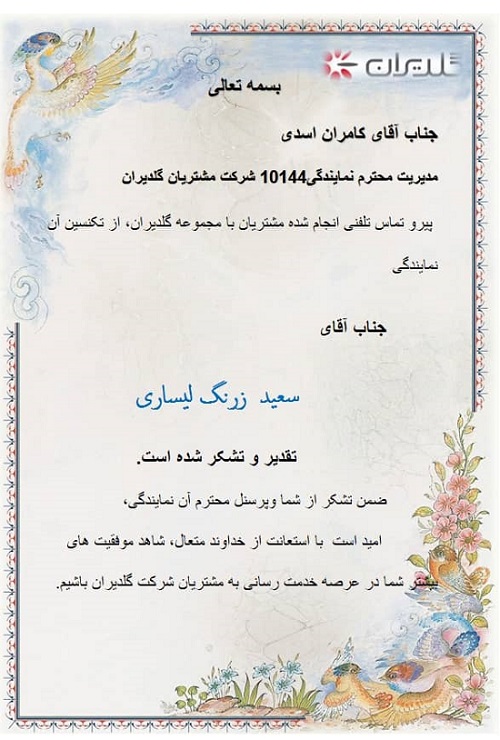 گلدیران
بسمه تعالی
جناب آقای کامران اسدی
مدیریت محترم نمایندگی10144 شرکت مشتریان گلدیران
پیرو تماس تلفنی انجام شده مشتریان با مجموعه گلدیران، از تکنسین آن
نمایندگی
جناب آقای
سعید زرنگ لیساری
تقدیر و تشکر شده است.
ضمن تشکر از شما وپرسنل محترم آن نمایندگی،
امید است با استعانت از خداوند متعال، شاهد موفقیت های
بیشتر شما در عرصه خدمت رسانی به مشتریان شرکت گلدیران باشیم.